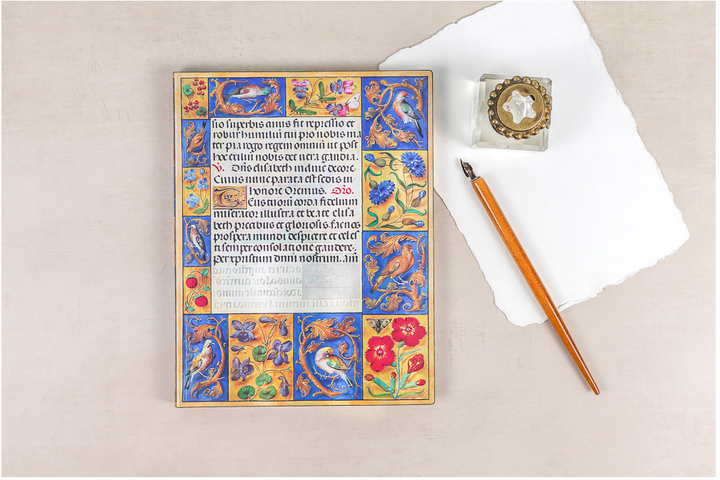 sio superbis animis fit repressio et
robur humilui tui pro nobis ma
ter pia rogo regem omniū ut post
hoc exiliū nobis det vera gaudia.
V. Diis elisabeth induit decore
Cuius nunc parata est sedis in
honore Oremus. Orō.
Tuorū corda fidelium
miserator illustra et beate elisa
beth precibus et gloriosis fac nos
prospera mundi despicere et celes
ti semper consolatione gaudere.
Per xpristum dnm nostrum. am